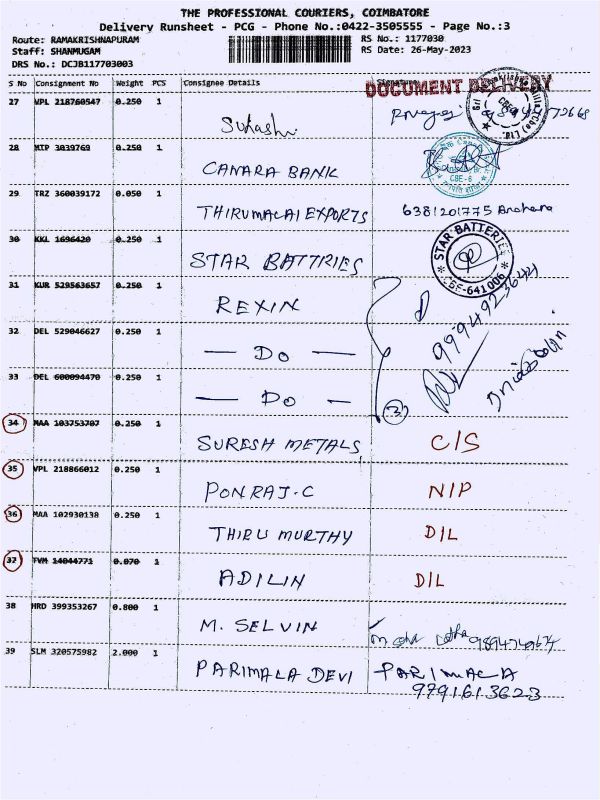 THE PROFESSIONAL COURIERS, COIMBATORE
Delivery Runsheet - PCG - Phone No.:0422-3505555 - Page No.:3
Route: RAMAKRISHNAPURAM RS No.: 1177030
Staff: SHANMUGAM RS Date: 26-May-2023
DRS No.: DCJB117703003
S No Consignment No Weight PCS Consignee Details Signature
DOCUMENT DELIVERY
27 VPL 218760547 0.250 1
28 MTP 3039769 0.250 1 CANARA BANK
CBE-6
29 TRZ 360039172 0.050 1 THIRUMALAI EXPORTS 6381201775 Archana
30 KKL 1696420 0.250 1 STAR BATTRIES
STAR BATTERIES
CBE-641006
31 KUR 529563657 0.250 1 REXIN
9994923644
32 DEL 529046627 0.250 1 — DO —
33 DEL 600094470 0.250 1 — DO — 3
34 MAA 103753707 0.250 1 SURESH METALS C/S
35 VPL 218866012 0.250 1 PONRAJ.C NIP
36 MAA 102930138 0.250 1 THIRU MURTHY D/L
37 TVM 14044771 0.070 1 ADILIN D/L
38 HRD 399353267 0.800 1 M. SELVIN
39 SLM 320575982 2.000 1 PARIMALA DEVI PARIMALA
9791613623